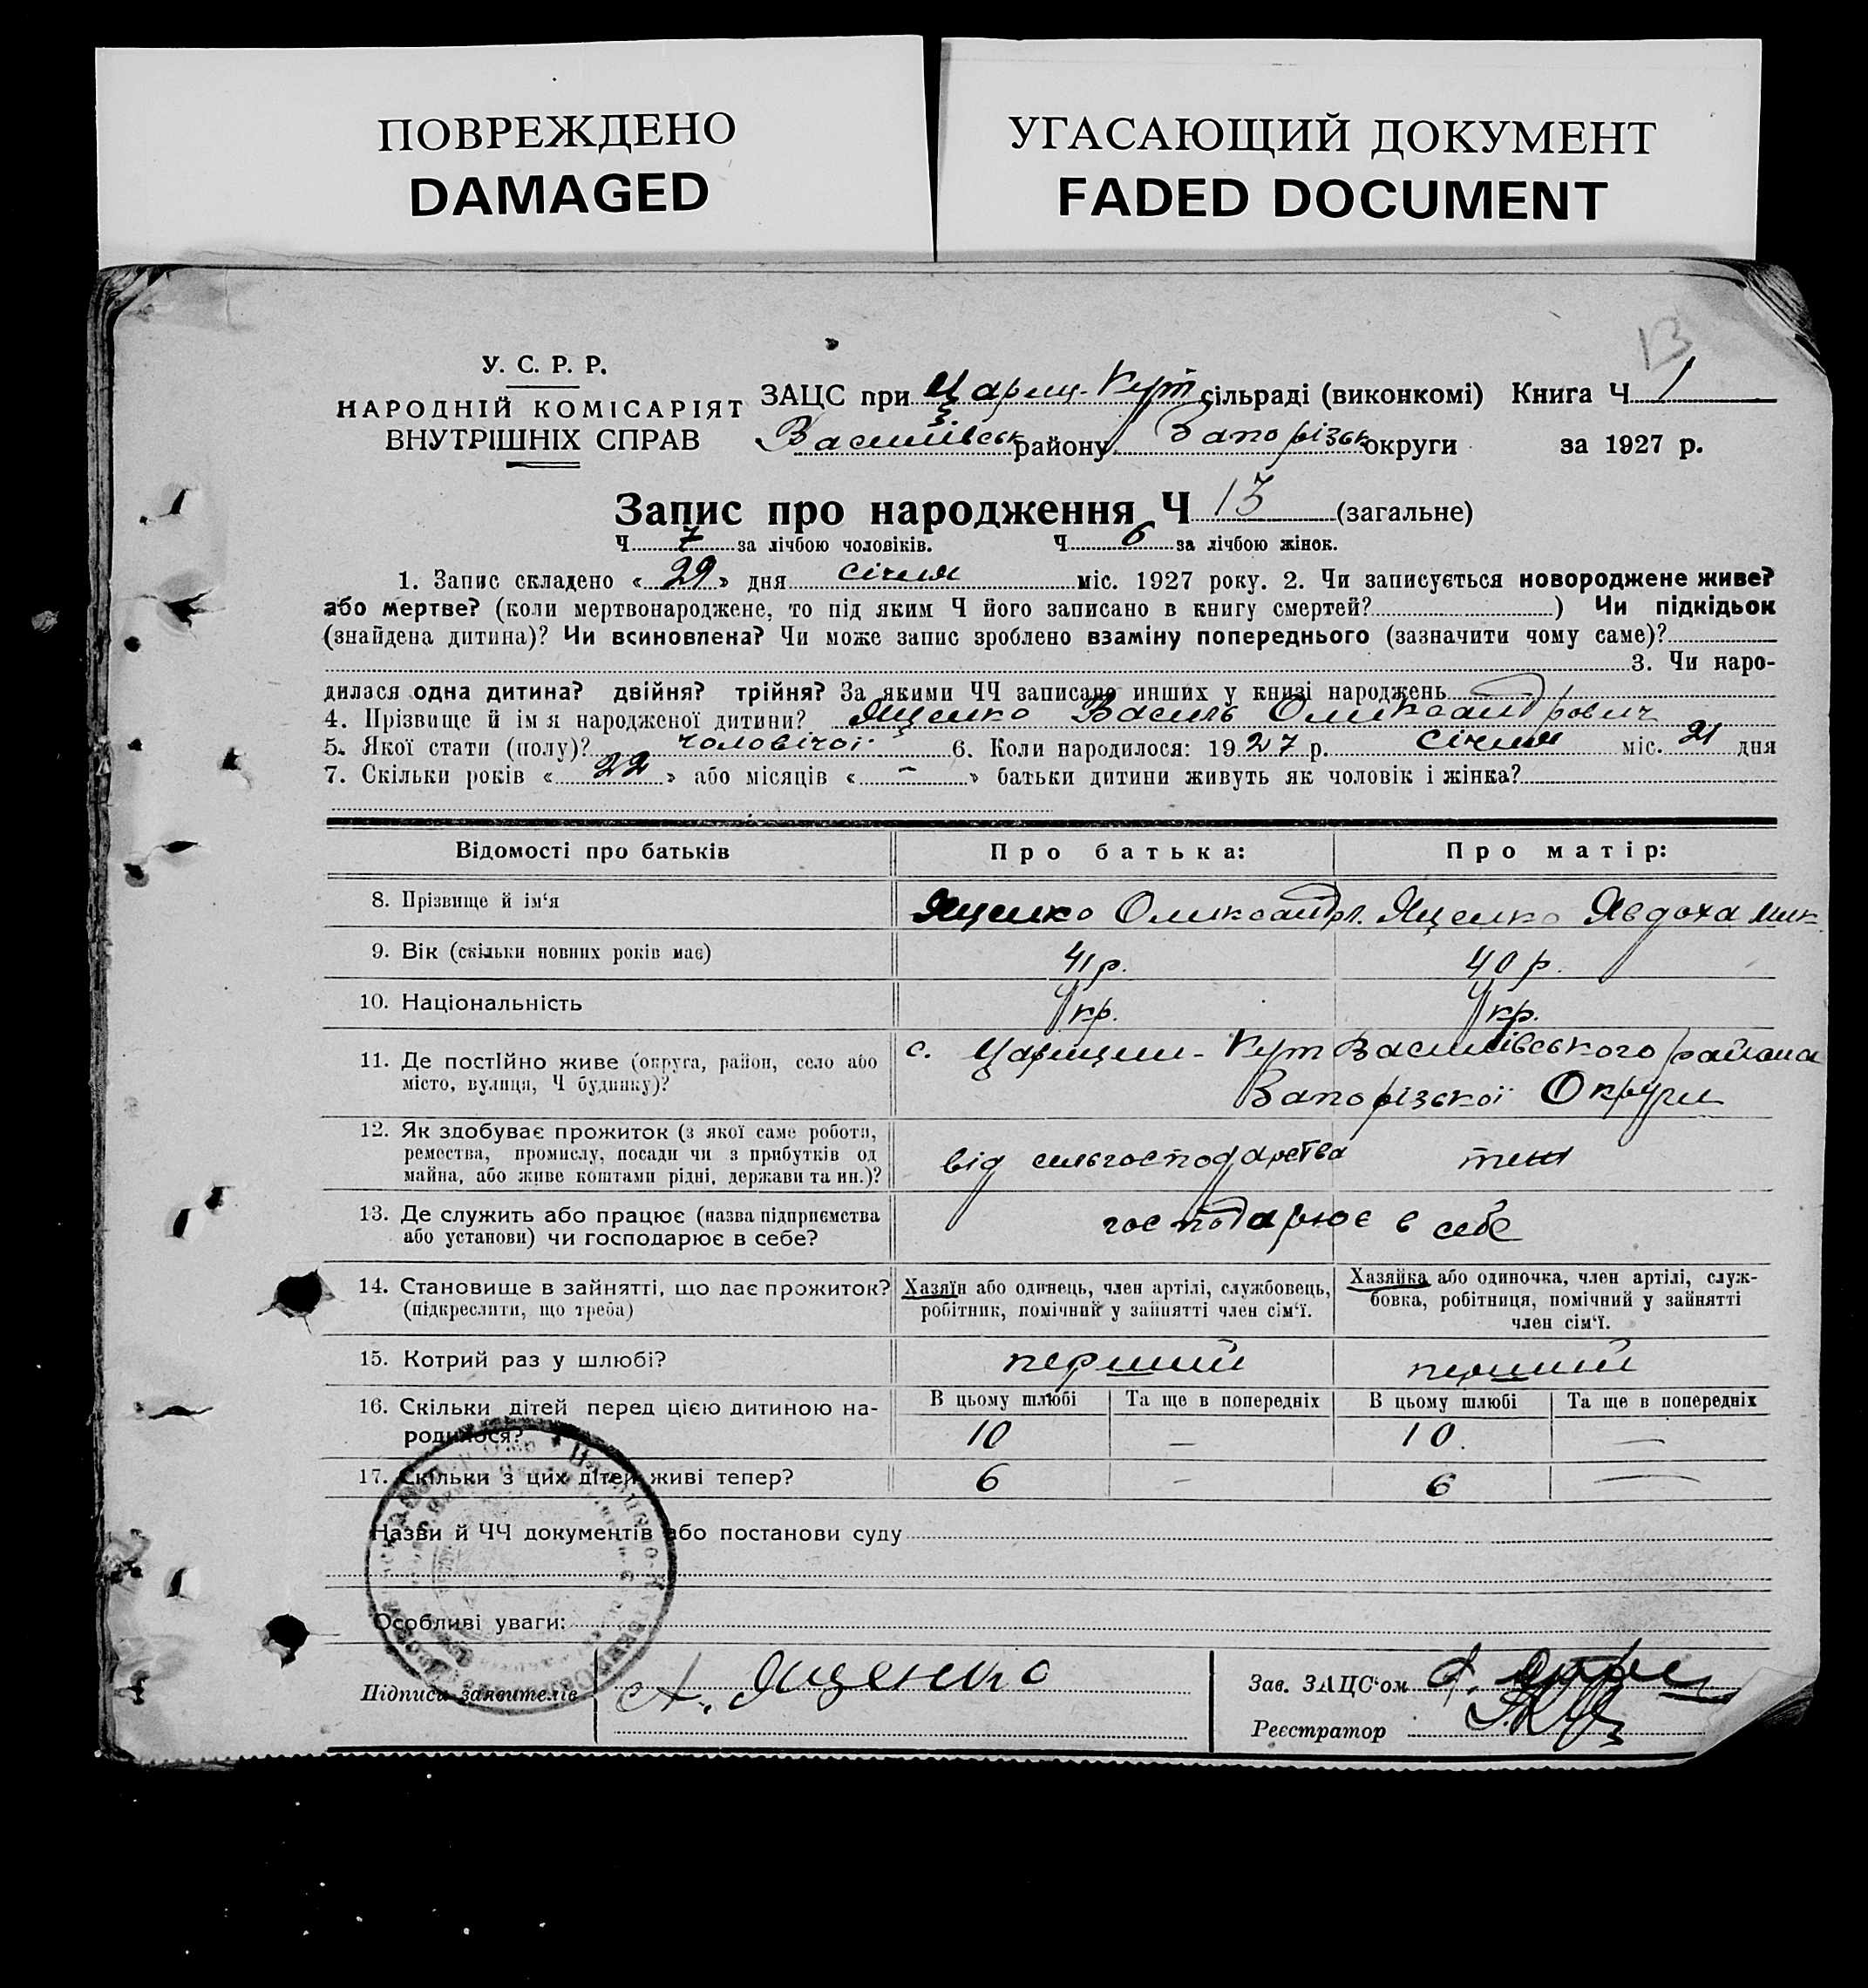 ПОВРЕЖДЕНО
DAMAGED
УГАСАЮЩИЙ ДОКУМЕНТ
FADED DOCUMENT
13
У. С. Р. Р.
НАРОДНІЙ КОМІСАРІЯТ
ВНУТРІШНІХ СПРАВ
ЗАЦС при Цариц-Кут сільраді (виконкомі) Книга Ч 1
Василівськ району Запорізьк округи за 1927 р.
Запис про народження Ч 13 (загальне)
Ч 7 за лічбою чоловіків. Ч 6 за лічбою жінок.
1. Запис складено « 29 » дня січня міс. 1927 року. 2. Чи записується новороджене живе?
або мертве? (коли мертвонароджене, то під яким Ч його записано в книгу смертей? ) Чи підкідьок
(знайдена дитина)? Чи всиновлена? Чи може запис зроблено взаміну попереднього (зазначити чому саме)?
3. Чи наро-
дилася одна дитина? двійня? трійня? За якими ЧЧ записано инших у книзі народжень
4. Прізвище й ім я народженої дитини? Яценко Василь Оликсандрович
5. Якої стати (полу)? чоловічої 6. Коли народилося: 1927 р. січня міс. 21 дня
7. Скільки років « 22 » або місяців « - » батьки дитини живуть як чоловік і жінка?
Відомості про батьків Про батька: Про матір:
8. Прізвище й ім‘я Яценко Оликсандр Яценко Явдоха Мик
9. Вік (скільки повних років має) 41 р. 40 р.
10. Національність Укр. Укр.
11. Де постійно живе (округа, район, село або
місто, вулиця, Ч будинку)?
с. Царицин-Кут Василівського района
Запорізької Округи
12. Як здобуває прожиток (з якої саме роботи,
ремества, промислу, посади чи з прибутків од
майна, або живе коштами рідні, держави та ин.)?
від сильгосподарства теж
13. Де служить або працює (назва підприємства
або установи) чи господарює в себе?
господарює в себе
14. Становище в зайнятті, що дає прожиток?
(підкреслити, що треба)
Хазяїн або одинець, член артілі, службовець,
робітник, помічний у зайнятті член сім‘ї.
Хазяйка або одиночка, член артілі, служ-
бовка, робітниця, помічний у зайнятті
член сім‘ї.
15. Котрий раз у шлюбі? перший перший
16. Скільки дітей перед цією дитиною на-
родилося?
В цьому шлюбі Та ще в попередніх В цьому шлюбі Та ще в попередніх
10 — 10. —
17. Скільки з цих дітей живі тепер? 6 - 6 —
Назви й ЧЧ документів або постанови суду
Особливі уваги:
Підписи заявителів А. Яценко
Зав. ЗАЦС‘ом
Реєстратор